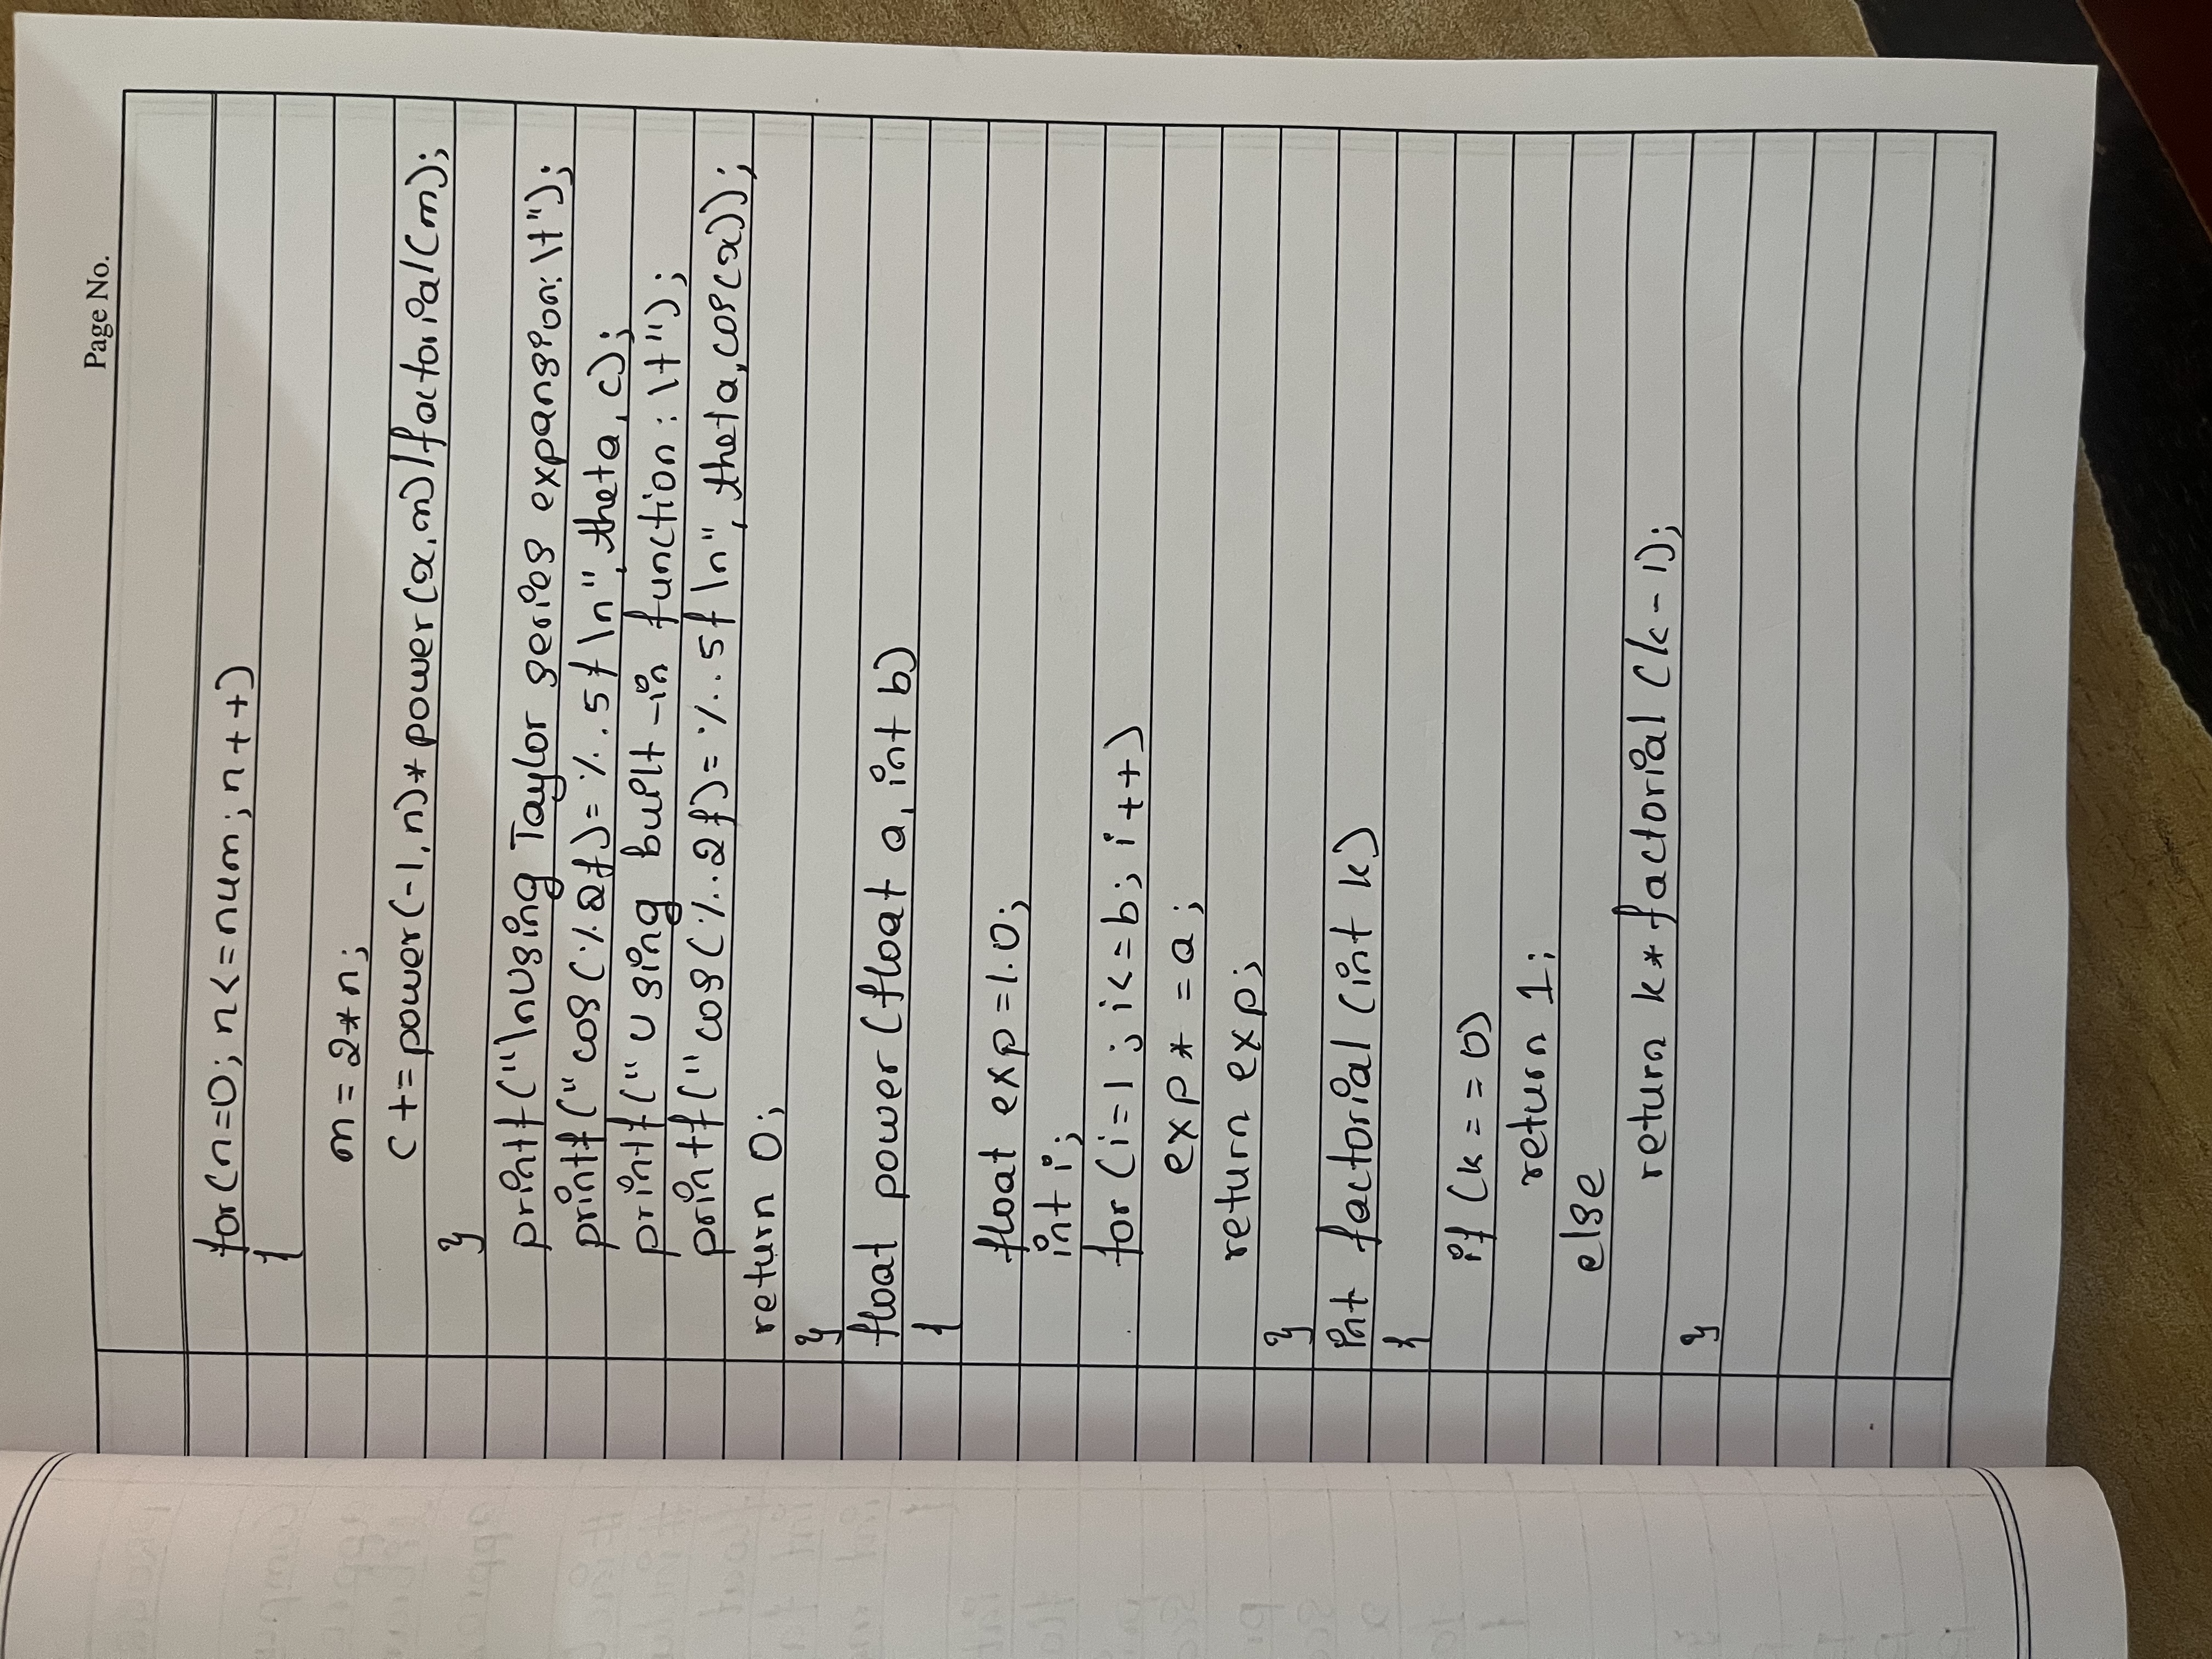 Page No.
for(n=0; n<=num; n++)
{
m = 2*n;
c += power(-1,n)*power(x,m)/factorial(m);
}
printf("\nUsing Taylor series expansion:\t");
printf("cos(%.2f)=%.5f\n", theta, c);
printf("Using built-in function:\t");
printf("cos(%.2f)=%.5f\n", theta,cos(x));
return 0;
}
float power(float a, int b)
{
float exp=1.0;
int i;
for (i=1; i<=b; i++)
exp* =a;
return exp;
}
int factorial (int k)
{
if (k = = 0)
return 1;
else
return k* factorial (k-1);
}